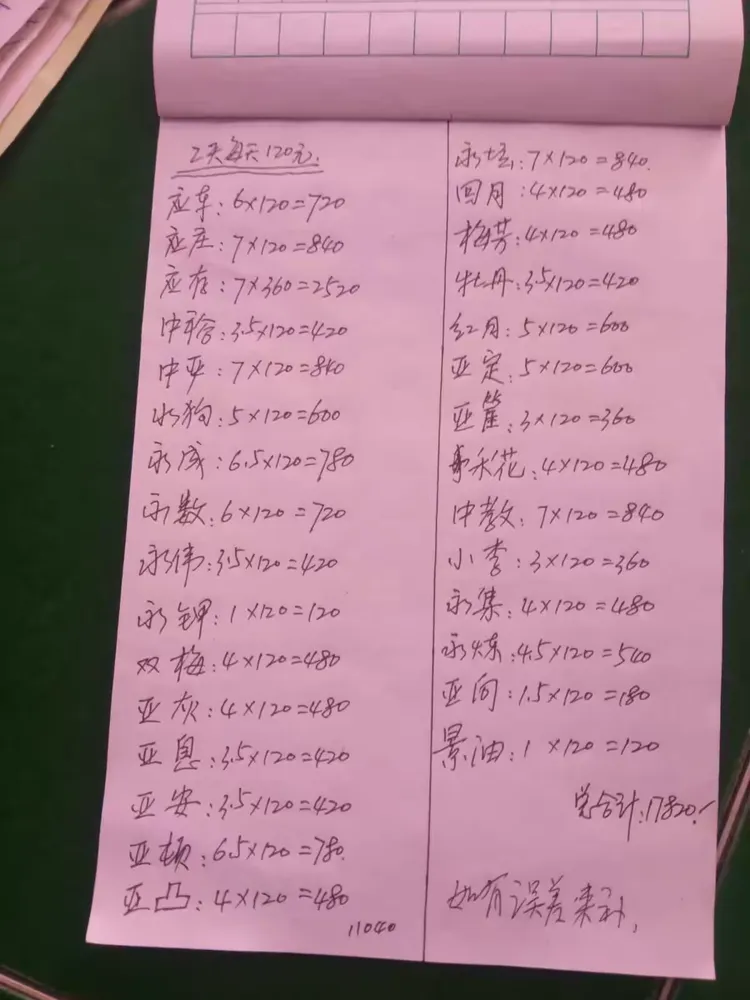 2天每天120元.
应车: 6×120=720
应庄: 7×120=840
应存: 7×360=2520
中: 3.5×120=420
中平: 7×120=840
永狗: 5×120=600
永成: 6.5×120=780
永数: 6×120=720
永伟: 3.5×120=420
永钾: 1×120=120
双梅: 4×120=480
亚灰: 4×120=480
亚息: 3.5×120=420
亚安: 3.5×120=420
亚顿: 6.5×120=780.
亚凸: 4×120=480
11040
永坛: 7×120=840.
回月: 4×120=480
梅芳: 4×120=480
牡丹: 3.5×120=420
红月: 5×120=600
亚定: 5×120=600
亚: 3×120=360
彩花: 4×120=480
中教: 7×120=840
小李: 3×120=360
永集: 4×120=480
永炼: 4.5×120=540
亚向: 1.5×120=180
景油: 1×120=120
总合计: 17820.
如有误差来补,